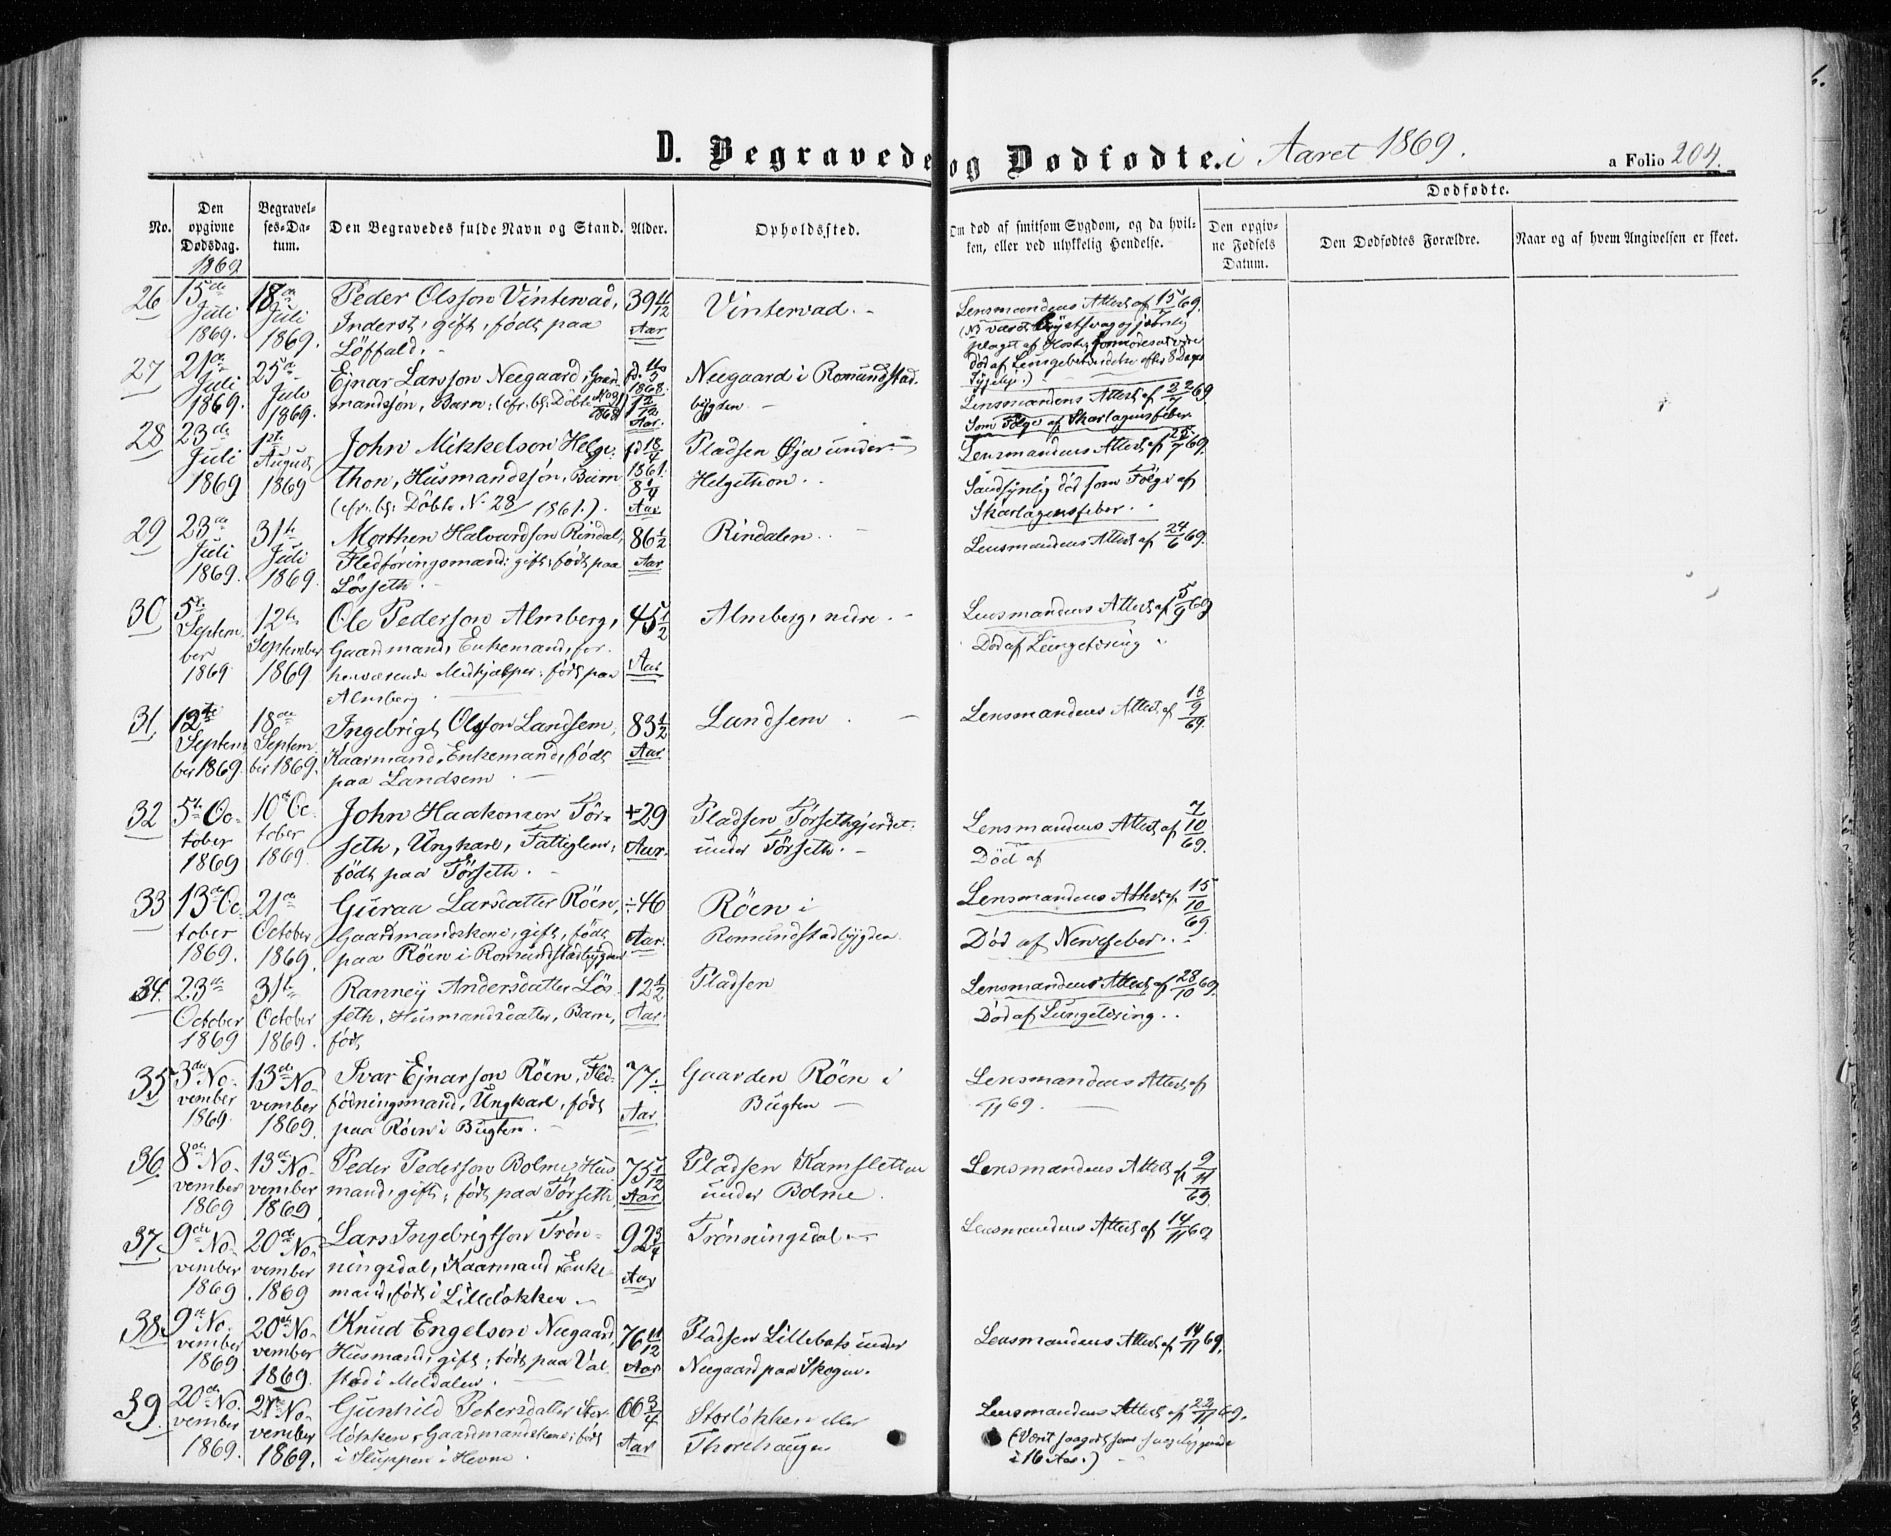 D. Begravede og Dødfødte. i Aaret 1869.
a Folio 204.
No.
Den opgivne Dødsdag.
Begravel-ses-Da-tum.
Den Begravedes fulde Navn og Stand.
Alder.
Opholdssted.
Om død af smitsom Sygdom, og da hvil-
ken, eller ved ulykkelig Hendelse.
Dødfødte.
Den opgiv-ne Fødsels Datum.
Den Dødfødtes Forældre.
Naar og af hvem Angivelsen er skeet.
1869
26 15de Juli 1869. 18de Juli 1869.
Peder Olsson Vintervad,
Inderst, gift, født paa
Løffald.
39 11/12 Aar
Vintervad.
Lensmandens Attest af 15/7 69.
plaget af Hoste, formodes at være
død af Lungebetændelse efter 8 Dages
Sygeleje.)
27 21de Juli 1869. 25de Juli 1869.
Ejnar Larsson Neegaard, Gaard-
mandssøn, Barn; (cfr. bl: Døbte No 91 1868)
1868. 1 2/12 Aar.
Neegaard i Romundstad-
bygden
Lensmandens Attest af
Som Følge af Skarlagensfeber
28 23de Juli 1869 1ste August 1869
John Mikkelson Helge-
thon, Husmandssøn, Barn
(cfr. bl: Døbte No 28/1861.)
fd 18/4 1861. 8 1/4 Aar
Pladsen Øja under
Helgethon.
Lensmandens Attest af 25/7 69.
Sandsynlig død som Følge af
Skarlagensfeber.
29 23de Juli 1869. 31te Juli 1869.
Morthen Halvardson Rindal,
Fledføringsmand; gift, født paa
Løsseth.
86 1/2 Aar
Rindalen.
Lensmandens Attest af 24/6 69.
30 5te Septem-ber 1869. 12te September 1869
Ole Pederson Almberg,
Gaardmand, Enkemand, for-
henværende Medhjælper, født paa
Almberg
45 1/2 Aar
Almberg, nedre.
Lensmandens Attest af 5/9 69
Død af Lungetæring
31. 12te Septem-ber 1869. 18de Septem-ber 1869.
Ingebrigt Olsson Landsem,
Kaarmand, Enkemand, født
paa Landsem
83 1/2 Aar
Landsem.
Lensmandens Attest af 13/9 69.
32 5te October 1869 10de October 1869.
John Haakonson Tør-
seth, Ungkarl, Fattiglem,
født paa Tørseth.
+29 Aar.
Pladsen Tørsethgjerdet
under Tørseth.
Lensmandens Attest af 7/10 69.
Død af
33 13de October 1869. 21de October 1869.
Guraa Larsdatter Røen,
Gaardmandskone, gift, født
paa Røen i Romundstadbygden
÷46 Aar.
Røen i
Romundstadbygden.
Lensmandens Attest af 15/10 69.
Død af Nervefeber.
34. 23de October 1869 31te October 1869.
Ranney Andersdatter Løs-
seth, Husmandsdatter, Barn,
født
12 1/2 Aar.
Pladsen
Lensmandens Attest af 28/10 69.
Død af Lungetæring.
35 3die November 1869. 13de November 1869.
Ivar Ejnarson Røen, Fled-
føringsmand, Ungkarl, født
paa Røen i Bugten.
77. Aar
Gaarden Røen i
Bugten
Lensmandens Attest af
/11 69.
36 8de November 1869 13de November 1869.
Peder Pederson Bolme, Hus-
mand, gift; født paa Tørseth.
Aar.
Pladsen Kamsletten
under Bolme.
Lensmandens Attest af 9/11 69.
37. 9de November 1869 20de November 1869
Lars Ingebrigtson Trøn-
ningsdal, Kaarmand, Enke-
mand, født i Lilleløkken.
92 3/4 Aar
Trønningsdal.
Lensmandens Attest af 14/11 69
38. 9de November 1869 20de November 1869.
Knud Engelson Neegaard,
Husmand, gift; født paa Val-
stad i Meldalen.
76 11/12 Aar
Pladsen Lillebak under
Neegaard paa Skogen.
Lensmandens Attest af 14/11 69.
39. 20de November 1869. 27de November 1869.
Gunhild Petersdatter Stor-
løkken, Gaardmandskone; født
i Sluppen i Hevne.
66 3/4 Aar
Storløkken eller
Thorehaugen
Lensmandens Attest af 22/11 69.
i 16 Aar.)